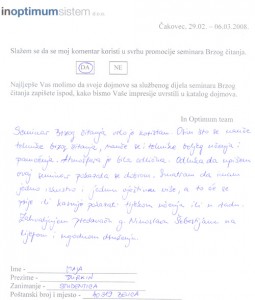 inoptimumsistem d.o.o.
Čakovec, 29.02. – 06.03.2008.
Slažem se da se moj komentar koristi u svrhu promocije seminara Brzog
čitanja.
DA NE
Najljepše Vas molimo da svoje dojmove sa službenog dijela seminara Brzog
čitanja zapišete ispod, kako bismo Vaše impresije uvrstili u katalog dojmova.
In Optimum team
Seminar Brzog čitanja vrlo je koristan. Osim što se nauče
tehnike brzog čitanja, nauče se i tehnike boljeg učenja i
pamćenja. Atmosfera je bila odlična. Odluka da upišem
ovaj seminar pokazala se dobrom. Smatram da imam
jedno iskustvo i jednu vještinu više, a to će se
prije ili kasnije pokazati tijekom učenja ili u radu.
Zahvaljujem predavaču g. Sebastijanu na
lijepom, ugodnom druženju.
Ime – MAJA
Prezime –
Zanimanje – STUDENTICA
Poštanski broj i mjesto –